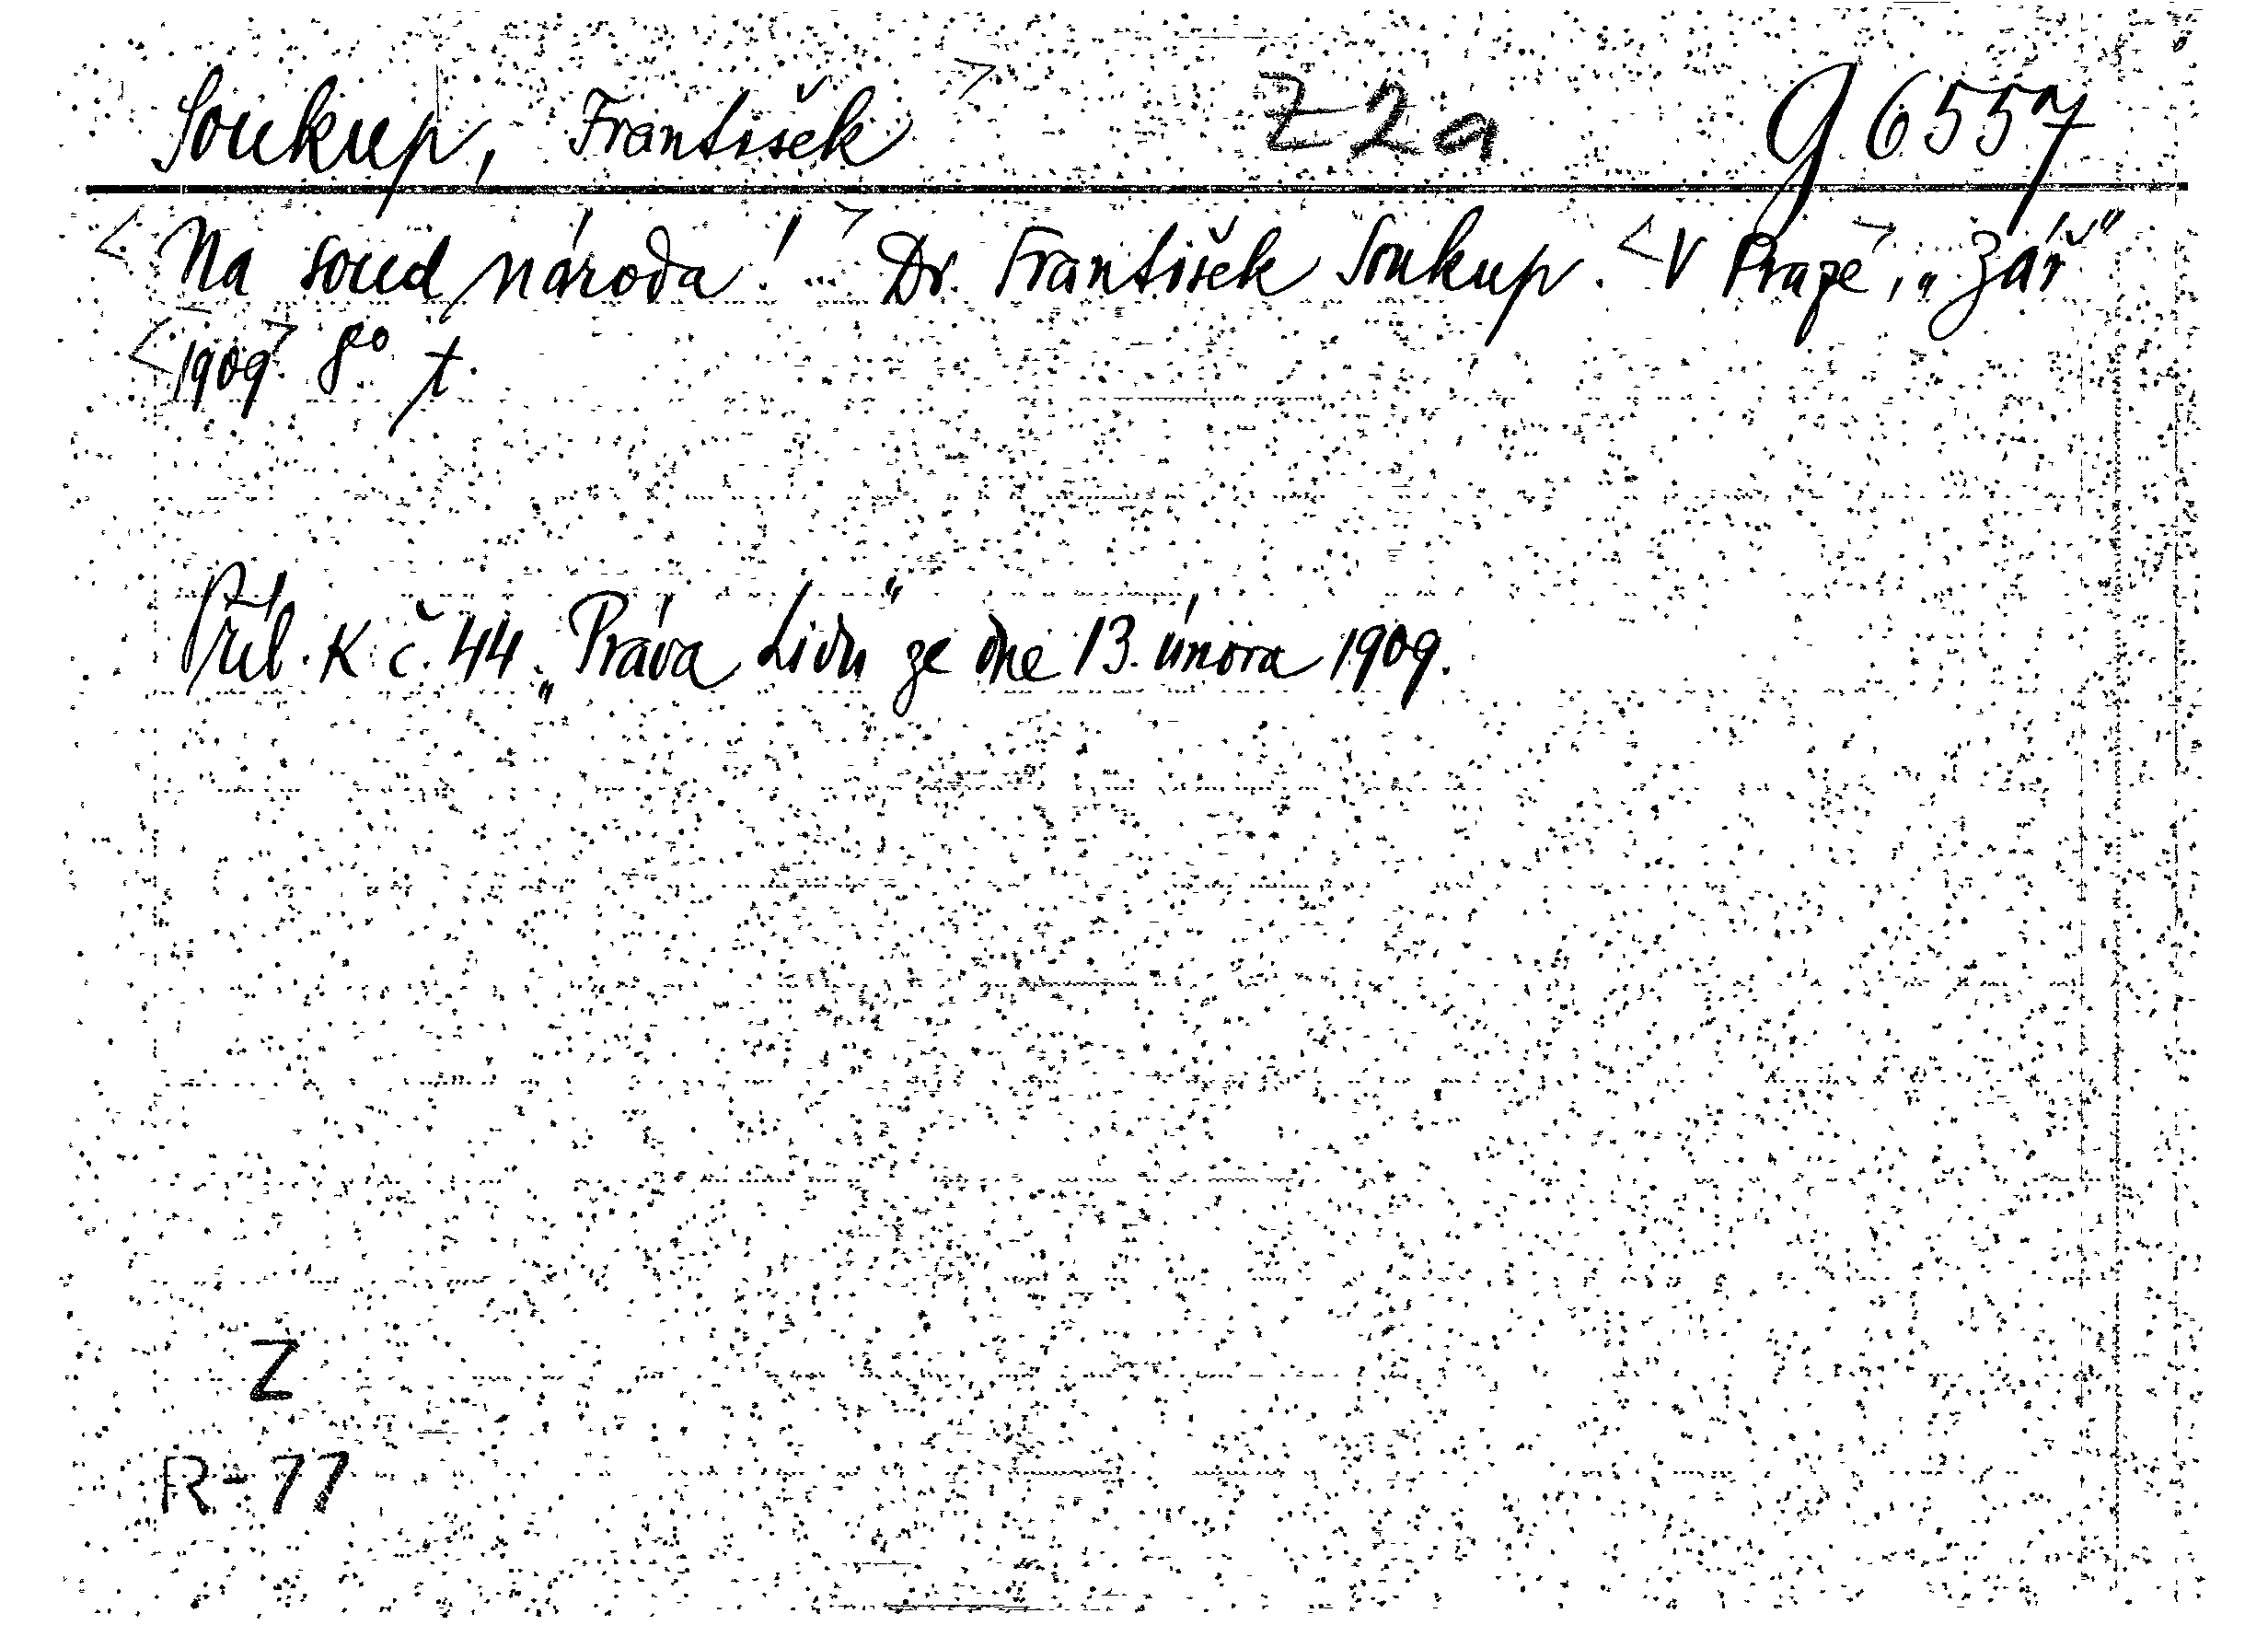 Soukup, František > Z 2a g 6557
< Na soud národa! ... > Dr. František Soukup. < V Praze >, „Zář"
< 1909 >. 8° t.
Příl. k č. 44 „Práva Lidu" ze dne 13. února 1909.
Z
R-77